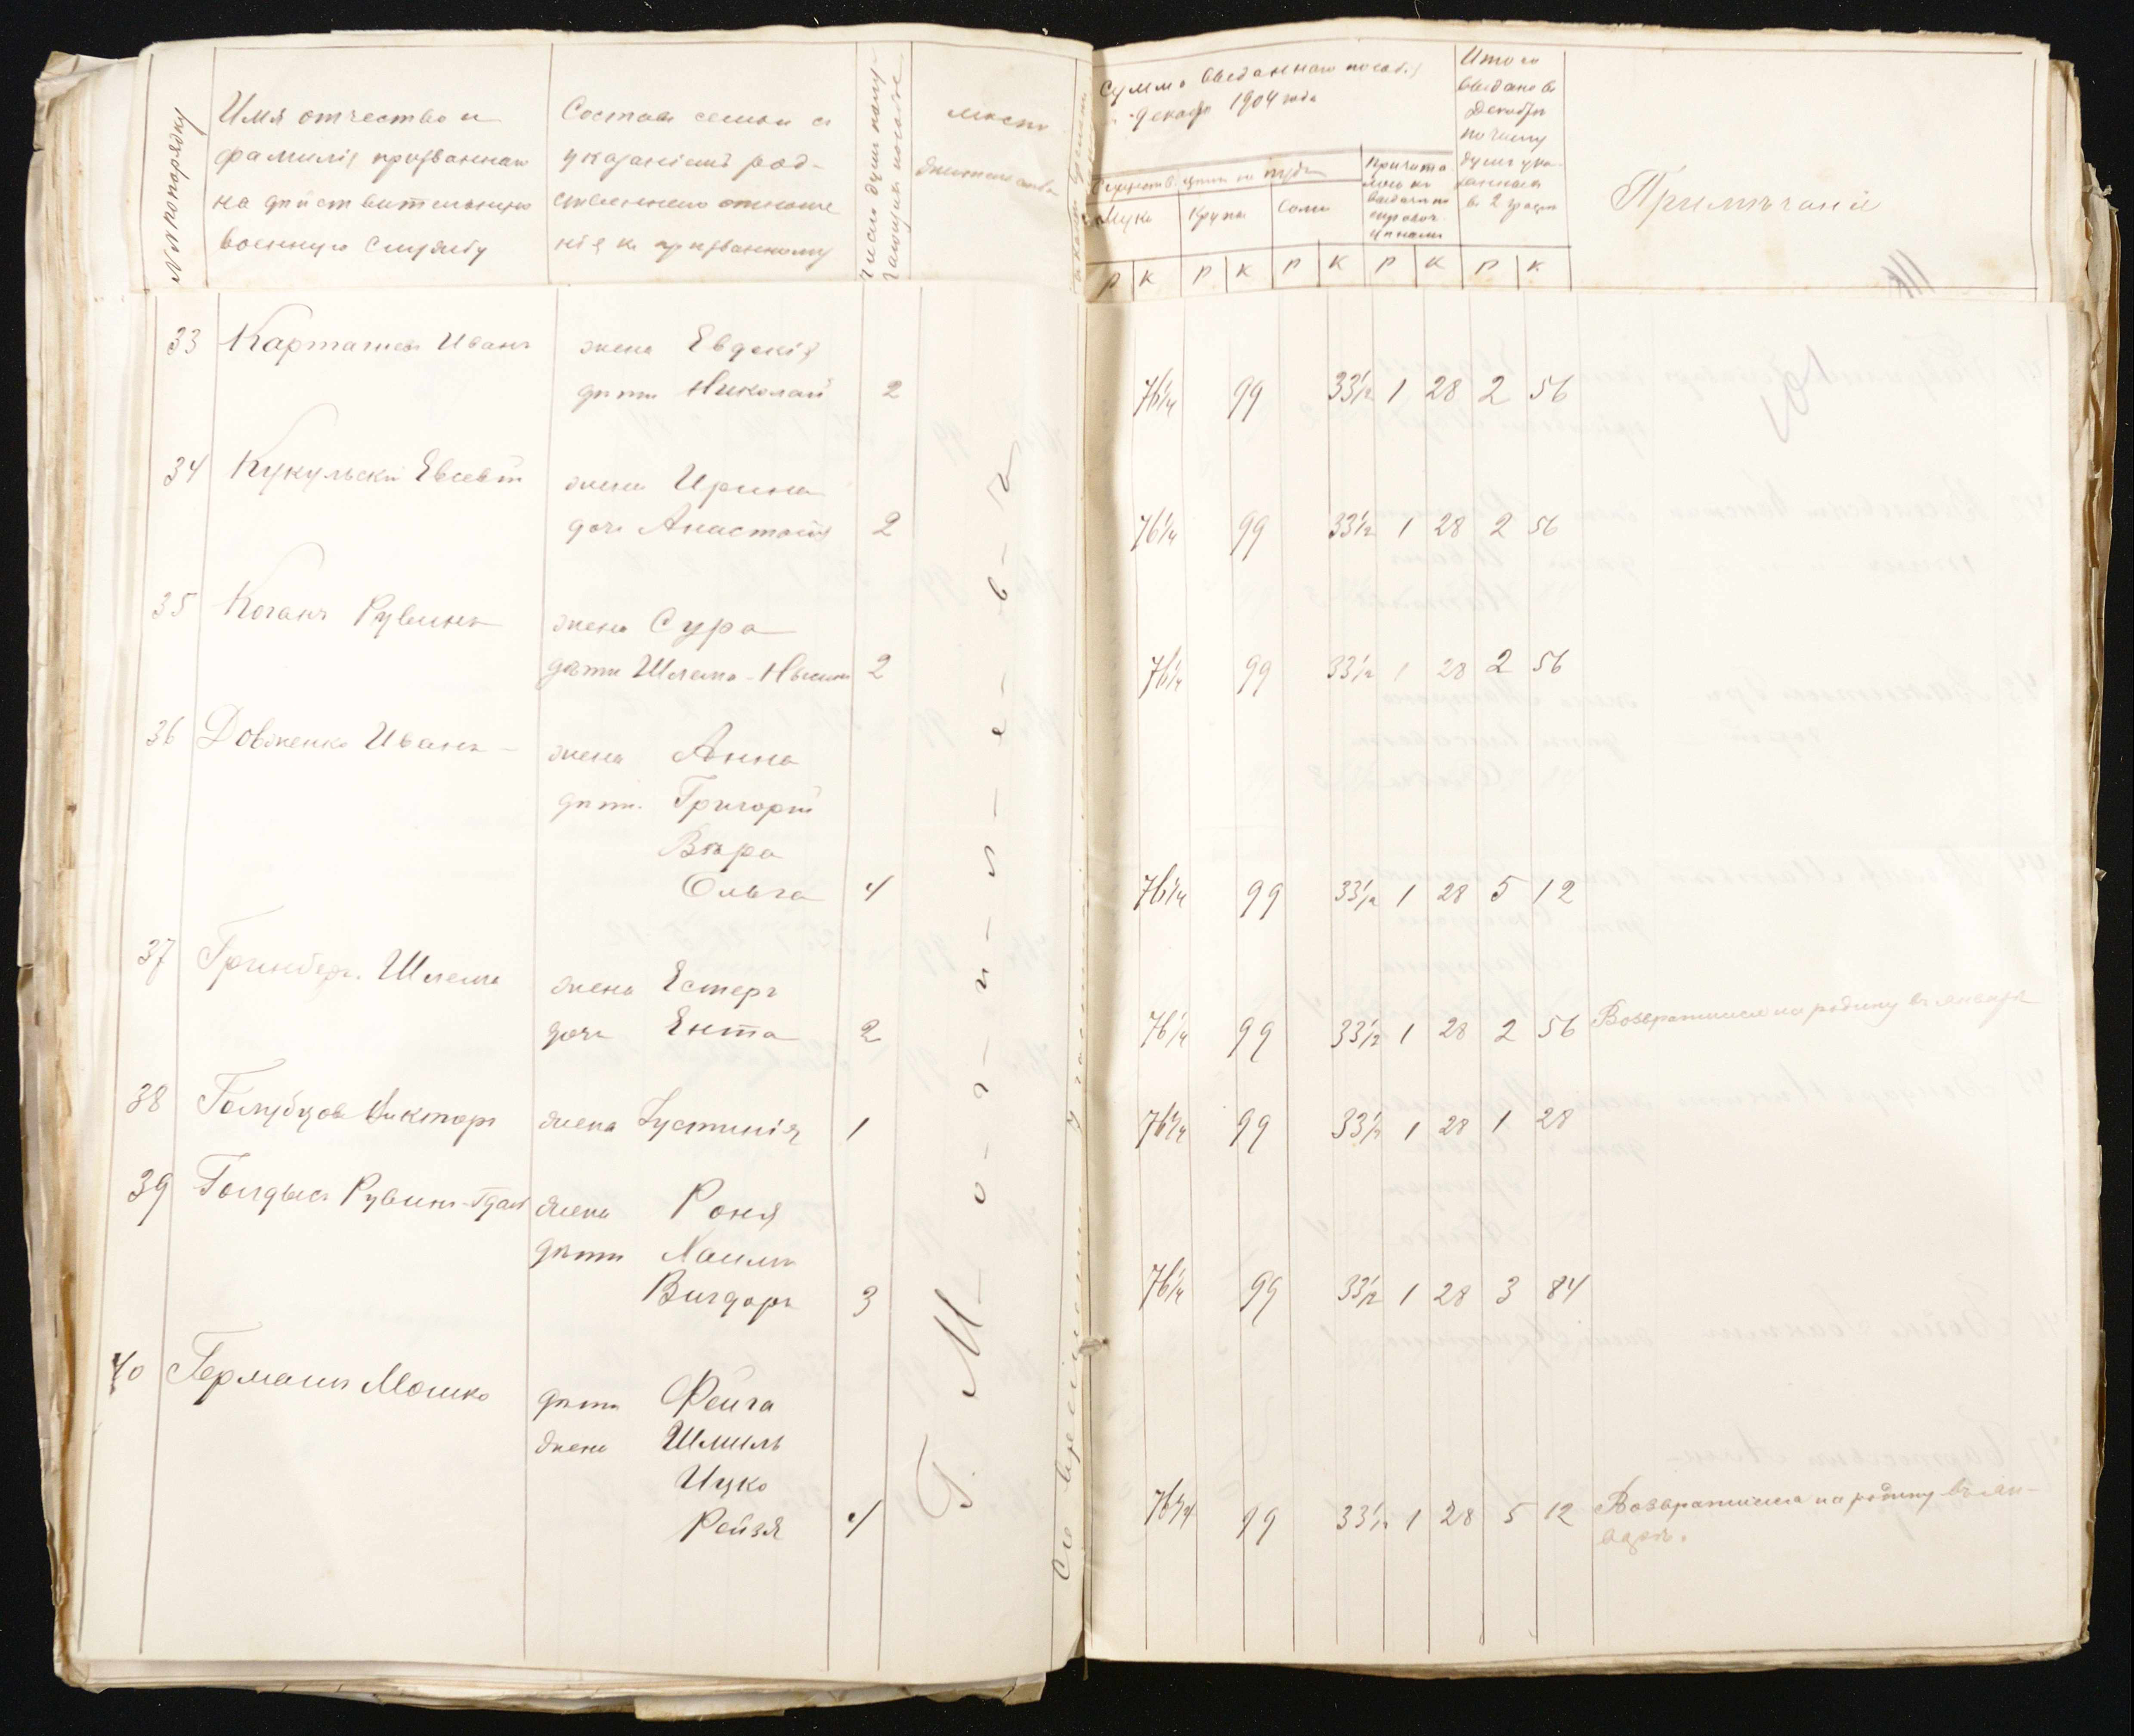 №№ по порядку
Имя отчество и
фамилія призваннаго
на дѣйствительную
военную службу
Составъ семьи съ
указаніемъ род-
ственнаго отноше
нія къ призванному
Число душъ полу-
чающихъ пособіе
мѣсто
жительства
Сумма выданнаго пособія
декабр 1904 года
цѣны на пудъ
Мука Крупа Соль
Причита
лось къ
выдачѣ по
справоч.
цѣнамъ
Итого
выдано въ
Декабрѣ
по числу
душъ ука-
занныхъ
въ 2 графѣ
Примѣчаніе
Р К Р К Р К Р К Р К
33 Карташевъ Иванъ жена Евдокія
дѣти Николай 2 76¼ 99 33½ 1 28 2 56
34 Кукульскій Евсевій жена Ирина
дочь Анастасія 2 76¼ 99 33½ 1 28 2 56
35 Коганъ Рувинъ жена Сура
дѣти Шлема- 2 76¼ 99 33½ 1 28 2 56
36 Довженко Иванъ жена Анна
дѣти. Григорій
Вѣра
Ольга 4 76¼ 99 33½ 1 28 5 12
37 Гринберг. Шлема жена Естеръ
дочь Ента 2 76¼ 99 33½ 1 28 2 56 Возвратился на родину въ январѣ
38 Голубцовъ Викторъ жена Іустинія 1 76¼ 99 33½ 1 28 1 28
39 Рувинъ- жена Роня
дѣти Хаимъ
Вигдоръ 3 76¼ 99 33½ 1 28 3 84
40 Германъ Мошко дѣти Фейга
жена Шмиль
Ицко
Рейзя 4 76¼ 99 33½ 1 28 5 12 Возвратился на родину въ ян-
варѣ.
Г. М-о-г-и-л-е-в-ѣ
Со времени